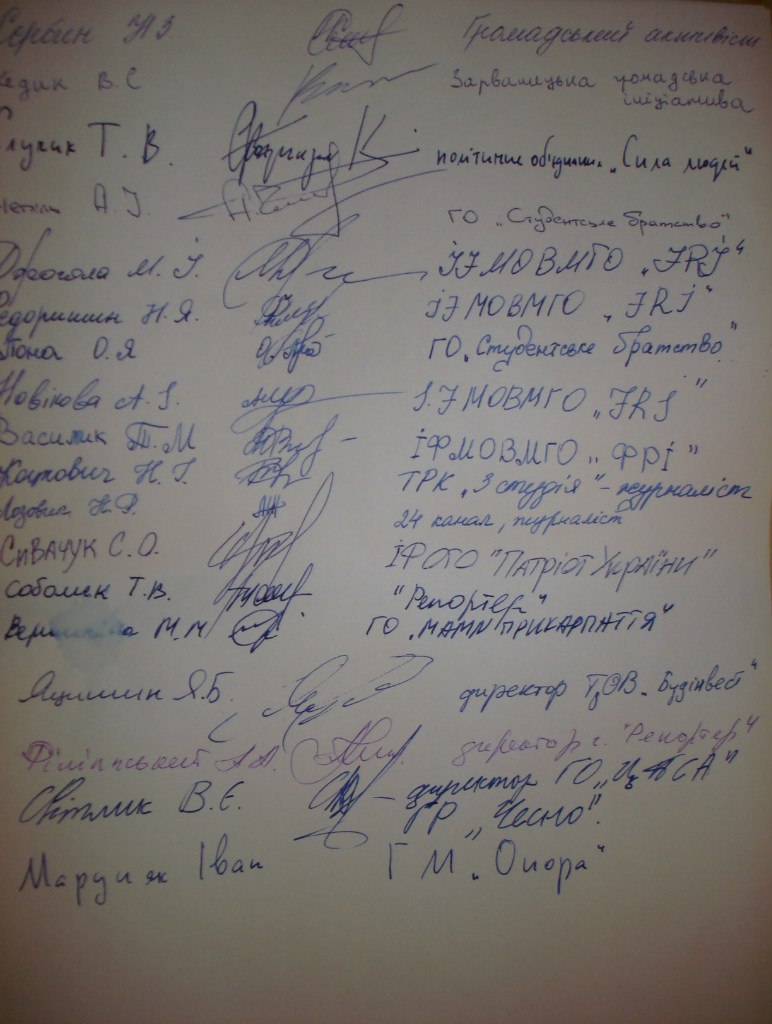 Сербин Н З. Громадський активіст
В. С Зарваницька громадська
ініціатива
Т. В. політичне об'єднання „Сила людей"
А. І. ГО „Студентське братство"
Дорогола М. І. ІФМОВМГО „FRI"
Федоришин Н. Я. ІФМОВМГО „FRI"
О. Я ГО „Студентське братство"
Новікова А. І. І.ФМОВМГО „FRI"
Василик Т. М ІФМОВМГО „ФРІ"
Н. І. ТРК „З студія" - журналіст
Лозовик Н. Ф. 24 канал, журналіст
СИВАЧУК С. О. ІФОГО "ПАТРІОТ УКРАЇНИ"
Соболик Т. В. "Репортер"
М. М ГО „МАМИ ПРИКАРПАТТЯ"
Яцишин Я. Б. директор ТзОВ „Будінвест"
А. А. директор г. "Репортер"
Світлик В. Є. – директор ГО „ЦАСА"
ГР „Чесно".
Маруняк Іван ГМ „Опора"